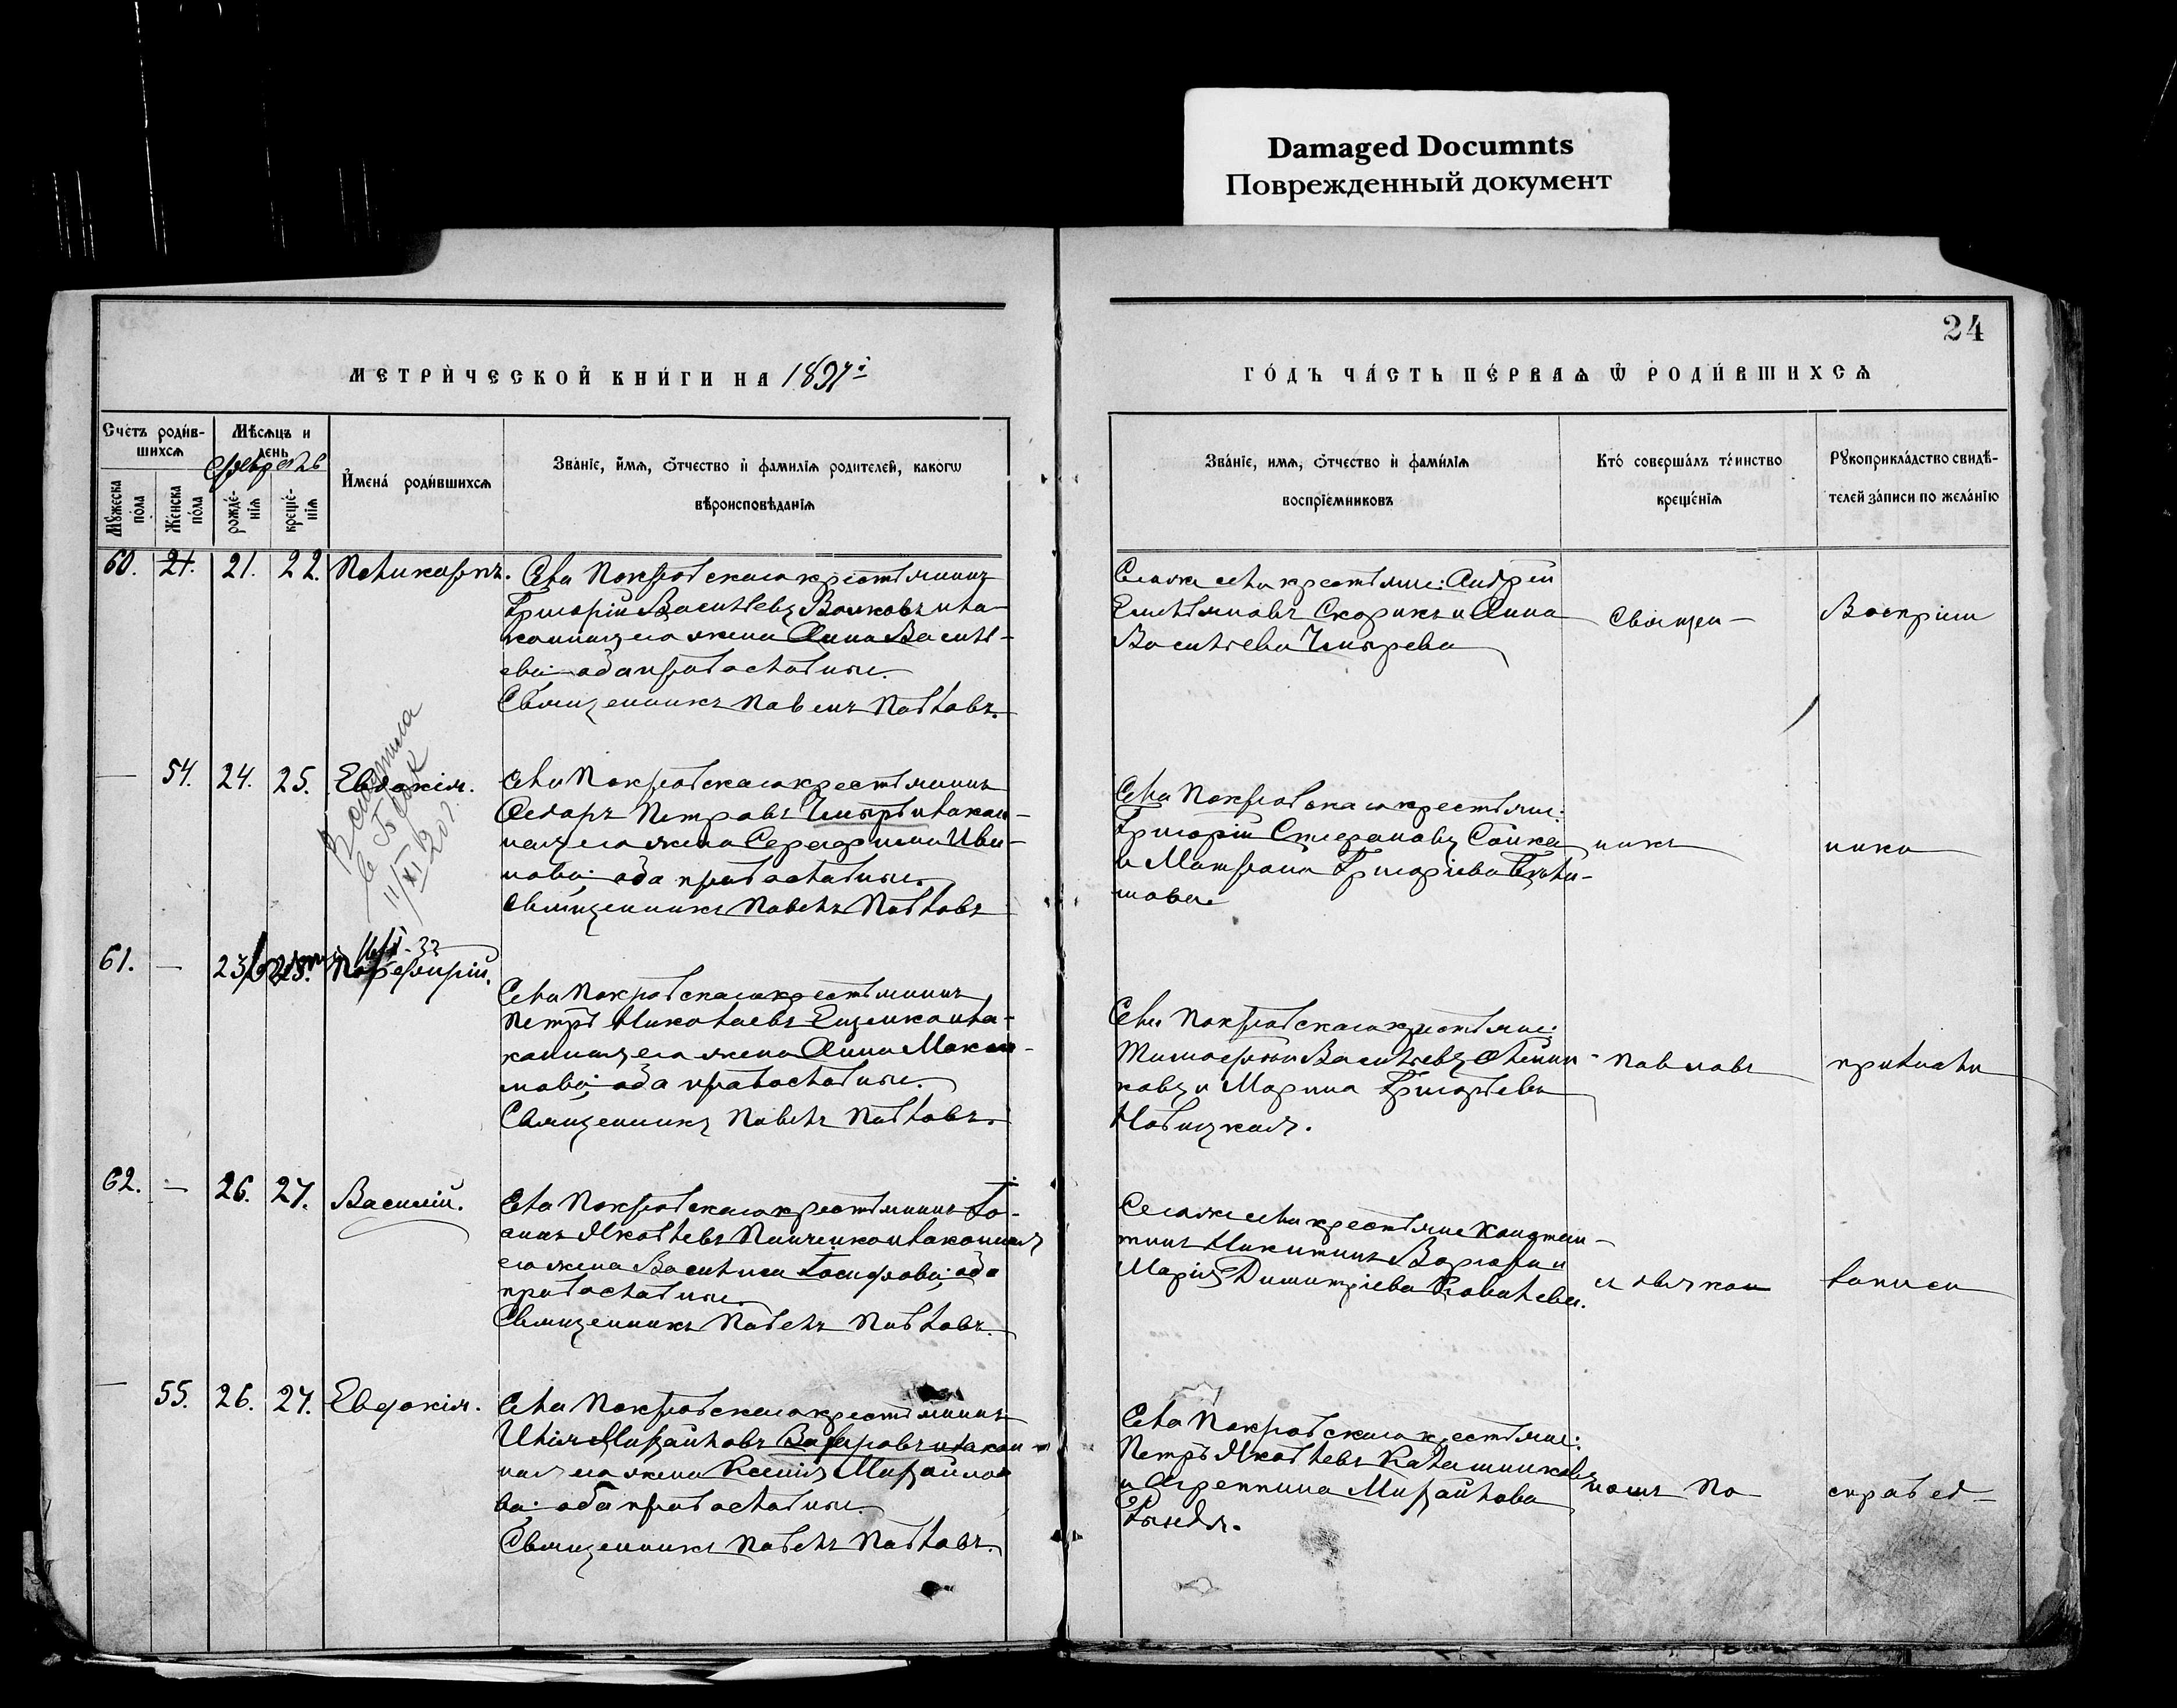 Damaged Documnts
Поврежденный документ
24
МЕТРИ́ЧЕСКОЙ КНИ́ГИ НА 1897й
ГО́ДЪ ЧА́СТЬ ПЕ́РВАѦ Ѿ РОДИ́ВШИХСѦ
Сче́тъ роди́в-
шихсѧ
Мѣ́сѧцъ и
день
Февраль
Мꙋ́жеска
по́ла
Же́нска
по́ла
рожде́-
нїѧ
креще́-
нїѧ
И҆мена́ роди́вшихсѧ
Зва́нїе, и҆́мѧ, ѻ҆́тчество и҆ фами́лїѧ роди́телей, како́гѡ
вѣроисповѣ́данїѧ
Зва́нїе, имѧ, ѻ҆́тчество и҆ фами́лїѧ
воспрїе́мниковъ
Кто́ соверша́лъ та́инство
креще́нїѧ
Рꙋкоприкла́дство свидѣ́-
телей за́писи по жела́нїю
60. 21. 21. 22. Поликарпъ.
Села Покровскаго крестьянинъ
Григорій Васильевъ Волковъ и за-
конная его жена Анна Василь-
ева; оба православные.
Священникъ Павелъ Павловъ.
Сего же села крестьяне: Андрей
Емельяновъ Скорикъ и Анна
Васильева Чмырева
Священ-
Воспріем
54. 24. 25. Евдокія.
Села Покровскаго крестьянинъ
Федоръ Петровъ Чмырь и закон-
ная его жена Серафима Ива-
нова; оба православные.
Священникъ Павелъ Павловъ
Села Покровскаго крестьяне:
Григорій Стефановъ Сайка
и Матрона Григорьева
мова
никъ
ника
11/XI
61. — 23. 25. Порфирій.
Села Покровскаго крестьянинъ
Петръ Николаевъ Ещенко и за-
конная его жена Анна Макси-
мова; оба православные.
Священникъ Павелъ Павловъ.
Села Покровскаго крестьяне:
Тимофей Васильевъ Олейни-
ковъ и Марина Григорьева
Новицкая.
Павловъ
приложи
62. — 26. 27. Василій.
Села Покровскаго крестьянинъ Іо-
аннъ Яковлевъ Панченко и законная
его жена Василиса Іосифова; оба
православные.
Священникъ Павелъ Павловъ.
Сего же села крестьяне Констан-
тинъ Никитинъ
Марія Димитріева Ковалева.
записи
— 55. 26. 27. Евдокія.
Села Покровскаго крестьянинъ
Илія Михайловъ Захаровъ и закон-
ная его жена Ксенія Михайло-
ва; оба православные.
Священникъ Павелъ Павловъ.
Села Покровскаго крестьяне:
Петръ Яковлевъ Калашниковъ
и Агрепина Михайлова
номъ По
справед-